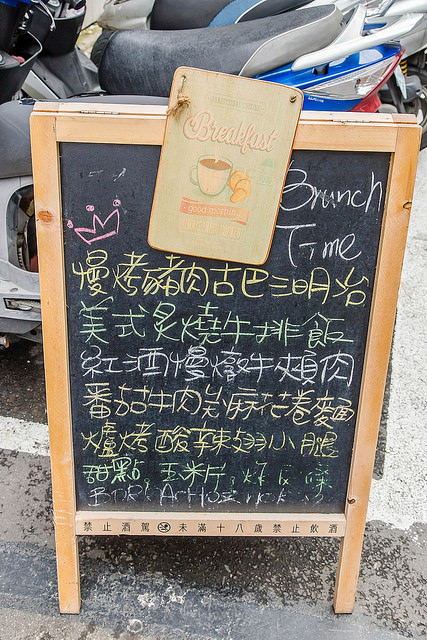 Breakfast
good morning
Brunch
Time
慢烤豬肉古巴三明治
美式炙燒牛排飯
紅酒慢燉牛頰肉
番茄牛肉米麻花卷麵
爐烤酸辣翅小腿
甜點, 玉米片,
禁止酒駕 未滿十八歲禁止飲酒